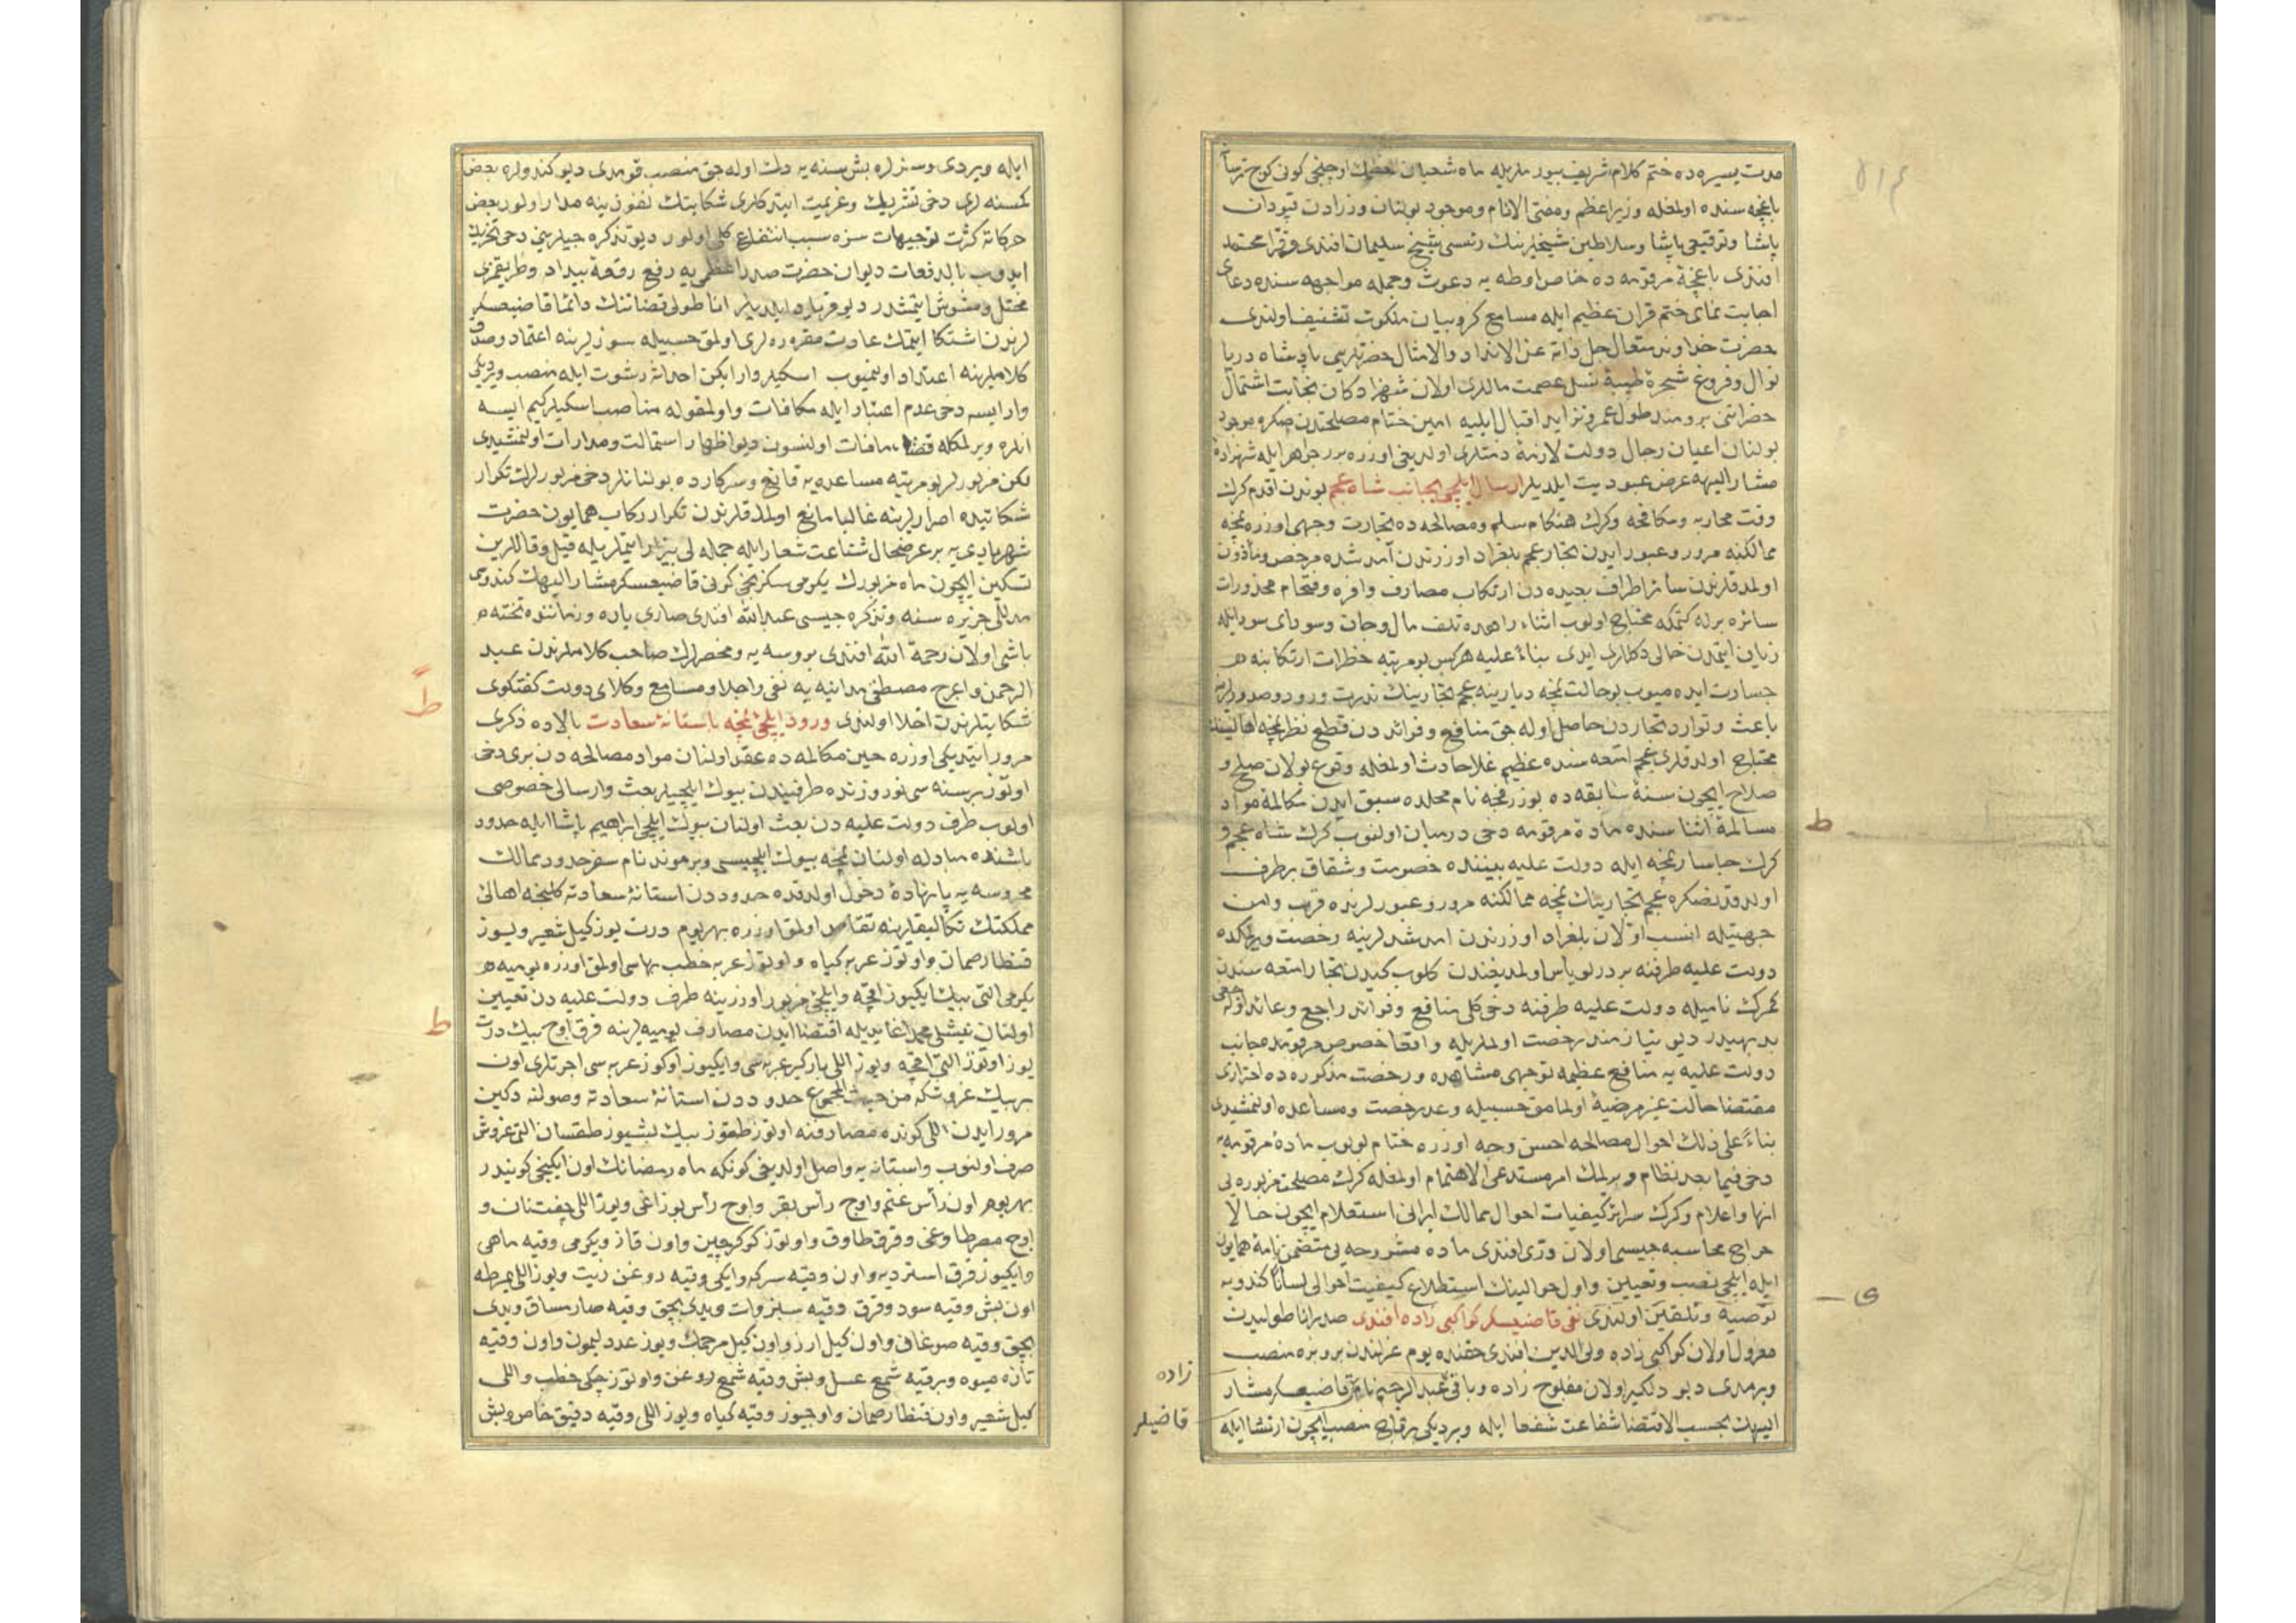 مدت یسیره ده ختم كلام شریف بیوردیلریله ماه شعبان اوچنجی كونی
باغچه سنده اولمغله وزیراعظم ومفتی الانام وموجود بولنان وزرادن قپودان
پاشا وتوقیعی پاشا وسلاطین شیخلرینك رئیسی شیخ سلیمان افندی وقرا محمد
افندی باغچهٔ مرقومه ده خاص اوطه یه دعوت وجمله مواجهه سنده دعای
اجابت نمای ختم قران عظیم ایله مسامع كروبیان ملكوت تشنیف اولندی
حضرت خداوند متعال جل ذاته عن الانداد والامثال حضرتلری پادشاه دریا
نوال وفروغ شجرهٔ طیبهٔ نسل عصمت ماللری اولان شهزادكان نجابت اشتمال
حضراتنی برومند طول عمر وتزاید اقبال ایلیه امین ختام مصلحتدن صكره موجود
بولنان اعیان رجال دولت لازمهٔ ذمتلری اولدیغی اوزره برر جواهر ایله شهزادهٔ
مشار الیهه عرض عبودیت ایلدیلر ارسال ایلچی بجانب شاه عجم بوندن اقدم كرك
وقت محاربه ومكافحه وكرك هنكام سلم ومصالحه ده تجارت وجهی اوزره نمچه
ممالكنه مرور وعبور ایدن تجار عجم بلغراد اوزرندن آمد شده مرخص ومأذون
اولمدقلرندن سائر اطراف بعیده دن ارتكاب مصارف وافره واقتحام محذورات
سائره برله كتمكه محتاج اولوب اثناء راهده تلف مال وجان وسودای سود ایله
زیان ایتمدن خالی دكللر ایدی بناءً علیه هركس بو مرتبه خطرات ارتكابنه
جسارت ایده میوب بو حالت نمچه دیارینه عجم تجارینك ندرت ورود وصدورلرینه
باعث وتوارد تجاردن حاصل اوله جق منافع وفوائد دن قطع نظر نمچه اهالیسنك
محتاج اولدقلری عجم امتعه سنده عظیم غلا حادث اولمغله وقوع بولان صلح و
صلاح ایچون سنهٔ سابقه ده پوزرفچه نام محلده سبق ایدن مكالمهٔ مواد
مسالمهٔ اثناسنده مادهٔ مرقومه دخی درمیان اولنوب كرك شاه عجم و
كرك چاسار نمچه ایله دولت علیه بیننده خصومت وشقاق برطرف
اولدقدنصكره عجم تجارینك نمچه ممالكنه مرور وعبورلرنده قرب وامن
جهتیله انسب اولان بلغراد اوزرندن امد شدلرینه رخصت ویرلمكده
دولت علیه طرفنه بر درلو بأس اولمدیغندن كلوب كیدن تجار امتعه سندن
كمرك نامیله دولت علیه طرفنه دخی كلی منافع وفوائد راجع وعائد اوله جغی
بدیهیدر دیو نیازمند رخصت اولملریله واقعا خصوص مرقومده جانب
دولت علیه یه منافع عظیمه توجهی مشاهده ورخصت مذكوره ده احترازی
مقتضی حالت غیر مرضیهٔ اولمامق حسبیله وعد رخصت ومساعده اولنمشیدی
بناءً علی ذلك احوال مصالحه احسن وجه اوزره ختام بولوب مادهٔ مرقومه یه
دخی فیما بعد نظام ویرلمك امر مستدعی الاهتمام اولمغله كرك مصلحت مزبوره یی
انها واعلام وكرك سرائر كیفیات احوال ممالك ایرانی استعلام ایچون حالا
خراج محاسبه جیسی اولان دری افندی ماده مشروحه یی متضمن نامهٔ همایون
ایله ایلچی نصب وتعیین واول حوالینك استطلاع كیفیت احوالی لساناً كندویه
توصیه وتلقین اولندی نفی قاضیعسكر كواكبی زاده افندی صدر اناطولیدن
معزول اولان كواكبی زاده ولی الدین افندی حقنده یوم عزلندن برو بره منصب
ویرمدی دیو دلكیر اولان مفلوج زاده وباقی عبدالرحیم نام قاضیعسكر مشار
الیهك بحسب الاقتضا شفاعت شفعا ایله ویردیكی برقاچ منصب ایچون ارتشا ایله
زاده
قاضیلر
ایله ویردی وسنزلره بش سنه یه دك اوله جق منصب قومدی دیو كندولره بعض
كسنه لری دخی تشریك وعزیمت ایتدكلری شكایتك نفوذینه مدار اولور بعض
حركاته كثرت توجیهات سزه سبب انتفاع كلی اولور دیو تذكره جیلرینی دخی تحریك
ایدوب بالدفعات دیوان حضرت صدر اعظمی یه رفع رقعهٔ بیداد وطریقمزی
مختل ومشوش ایتمشدر دیو فریاد ایلدیلر اناطولی قضاتنك دائما قاضیعسكر
لرندن اشتكا ایتمك عادت مقرره لری اولمق حسبیله سوزلرینه اعتماد وصدق
كلاملرینه اعتداد اولنمیوب اسكیلر وار ایكن احداثه رشوت ایله منصب ویردیكی
وار ایسه دخی عدم اعتبار ایله مكافات واولمقوله مناصب اسكیلر كیم ایسه
انلره ویرلمكله قضاء مافات اولنسون دیو اظهار استمالت ومدارات اولنمشیدی
لكن مزبورلر بو مرتبه مساعده یه قانع وسركارده بولنانلر دخی مزبورلرك تكرار
شكایتده اصرارلرینه غالبا مانع اولمدقلرندن تكرار ركاب همایون حضرت
شهریاری یه بر عرضحال شناعت شعار ایله جمله یی بیزار ایتملریله قیل وقاللرین
تسكین ایچون ماه مزبورك یكرمی سكزنجی كونی قاضیعسكر مشار الیهك كندوسی
مدللی جزیره سنه وتذكره جیسی عبدالله افندی صاری یاره وزماننده تخته
باشی اولان رحمة الله افندی بروسه یه ومحضرلرك صاحب كلاملرندن عبد
الرحمن واعرج مصطفی مدانیه یه نفی واجلا ومسامع وكلای دولت كفتكوی
شكایتلرندن اخلا اولندی ورود ایلچیٔ نمچه باستانهٔ سعادت بالاده ذكری
مرور ایتدیكی اوزره حین مكالمه ده عقد اولنان مواد مصالحه دن بری دخی
اولوب طرف دولت علیه دن بعث اولنان بیوك ایلچی ابراهیم پاشا ایله حدود
باشنده مبادله اولنان نمچه بیوك ایلچیسی ویرموند نام سفر حدود ممالك
محروسه یه پانهادهٔ دخول اولدقده حدوددن استانهٔ سعادته كلنجه اهالئ
مملكتك تكالیفلرینه تقاص اولمق اوزره بهر یوم درت یوز كیل شعیر ویوز
قنطار صمان واوتوز عربه كیاه واوتوز عربه حطب بهاسی اولمق اوزره یومیه
یكرمی التی بیك ایكیوز اقچه وایلچئ مزبور اوزرینه طرف دولت علیه دن تعیین
اولنان محمد اغا یدیله اقتضا ایدن مصارف یومیه لرینه قرق اوچ بیك درت
یوز اوتوز التی اقچه ویوز اللی باركیر عربه سی وایكیوز اوكوز عربه سی اجرتلری اون
بر بیك غروشكه من حیث المجموع حدوددن استانهٔ سعادته وصولنه دكین
مرور ایدن اللی كونده مصارفنه اوتوز طقوز بیك بشیوز طقسان التی غروش
صرف اولنوب واستانه یه واصل اولدیغی كونكه ماه رمضانك اون ایكنجی كونیدر
بهر یوم اون رأس غنم واوچ رأس بقر واوچ رأس بوزاغی ویوز اللی چفت نان و
اوچ مصرطاوغی وقرق طاوق واوتوز كوكرجین واون قاز ویكرمی وقیه ماهی
وایكیوز قرق استردیه واون وقیه سركه وایكی وقیه روغن زیت ویوز اللی یمرطه
اون بش وقیه سود وقرق وقیه سبزوات ویدی بچق وقیه صارمساق ویدی
بچق وقیه صوغان واون كیل ارز واون كیل مرجمك ویوز عدد لیمون واون وقیه
تازه میوه وبر وقیه شمع عسل وبش وقیه شمع روغن واوتوز چكی حطب واللی
كیل شعیر واون قنطار صمان واوچیوز وقیه كیاه ویوز اللی وقیه دقیق خاص وبش